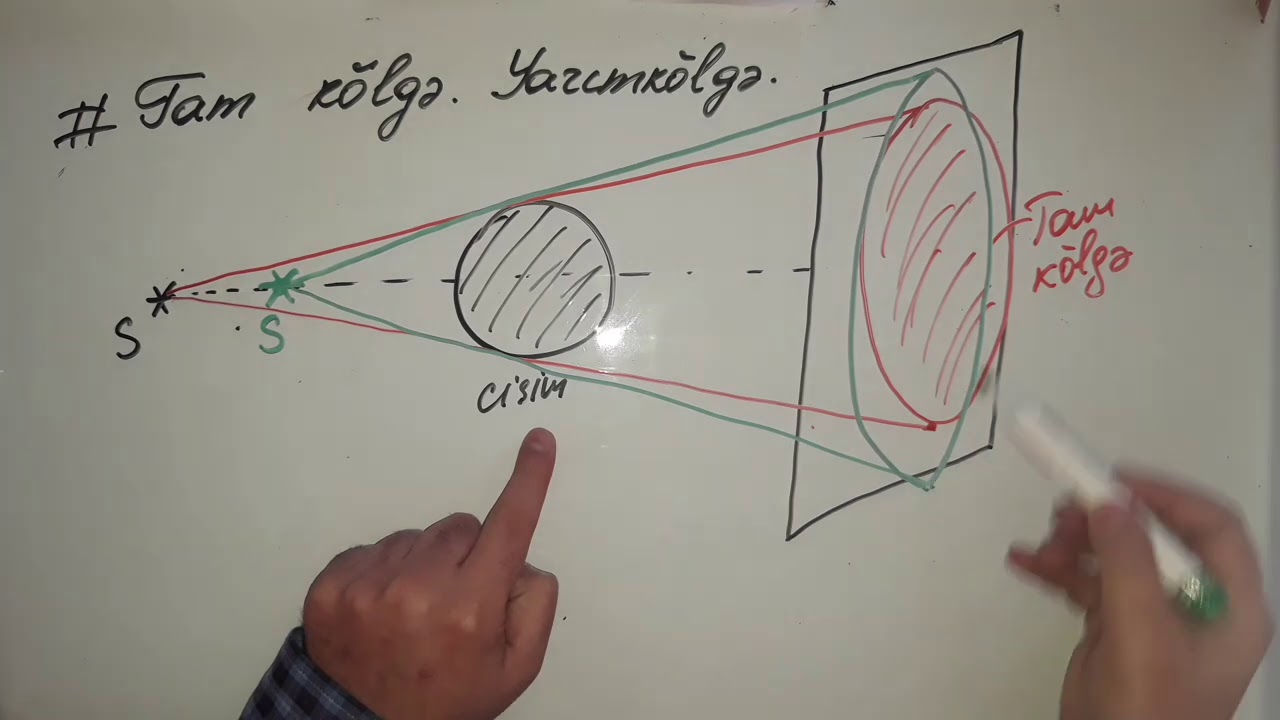 # Tam kölgə. Yarımkölgə.
S
S
cisim
Tam
kölgə